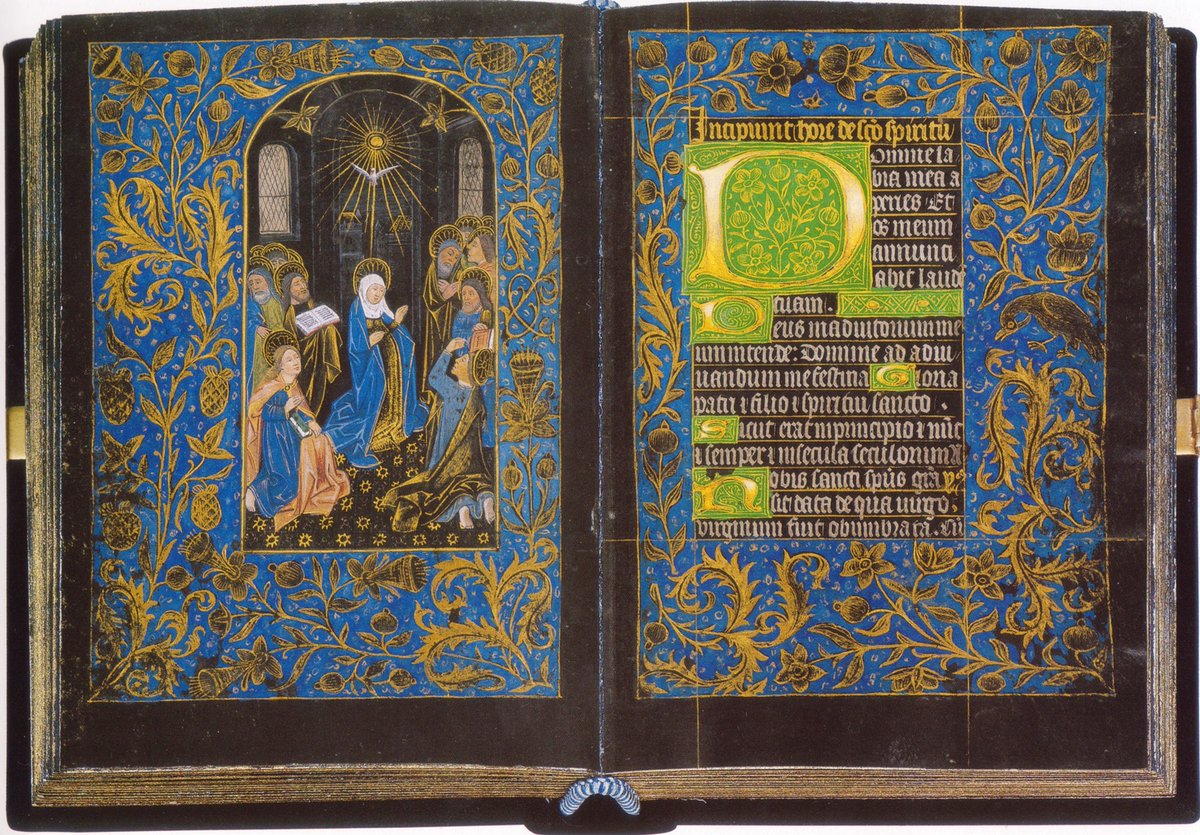 Incipiunt hore de sco spiritu
Domine la-
bia mea a
peries · Et
os meum
annunci
abit laude
tuam ·
Deus in adiutorium me
um intende: Domine ad adiu-
uandum me festina Gloria
patri ⁊ filio ⁊ spiritui sancto ·
Sicut erat in principio ⁊ nūc
⁊ semper ⁊ in secula seculorum a
Nobis sancti spūs grā
sit data de qua uirgo ·
virginum fuit obumbrata · Cū